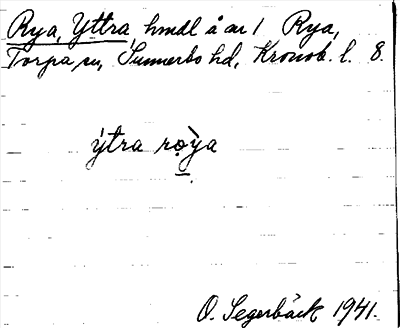 Rya, Yttra, hmdl å av 1 Rya,
Torpa sn, Sunnerbo hd, Kronob. l. 8.
ýtra rọ̀ya
O. Segerbäck 1941.